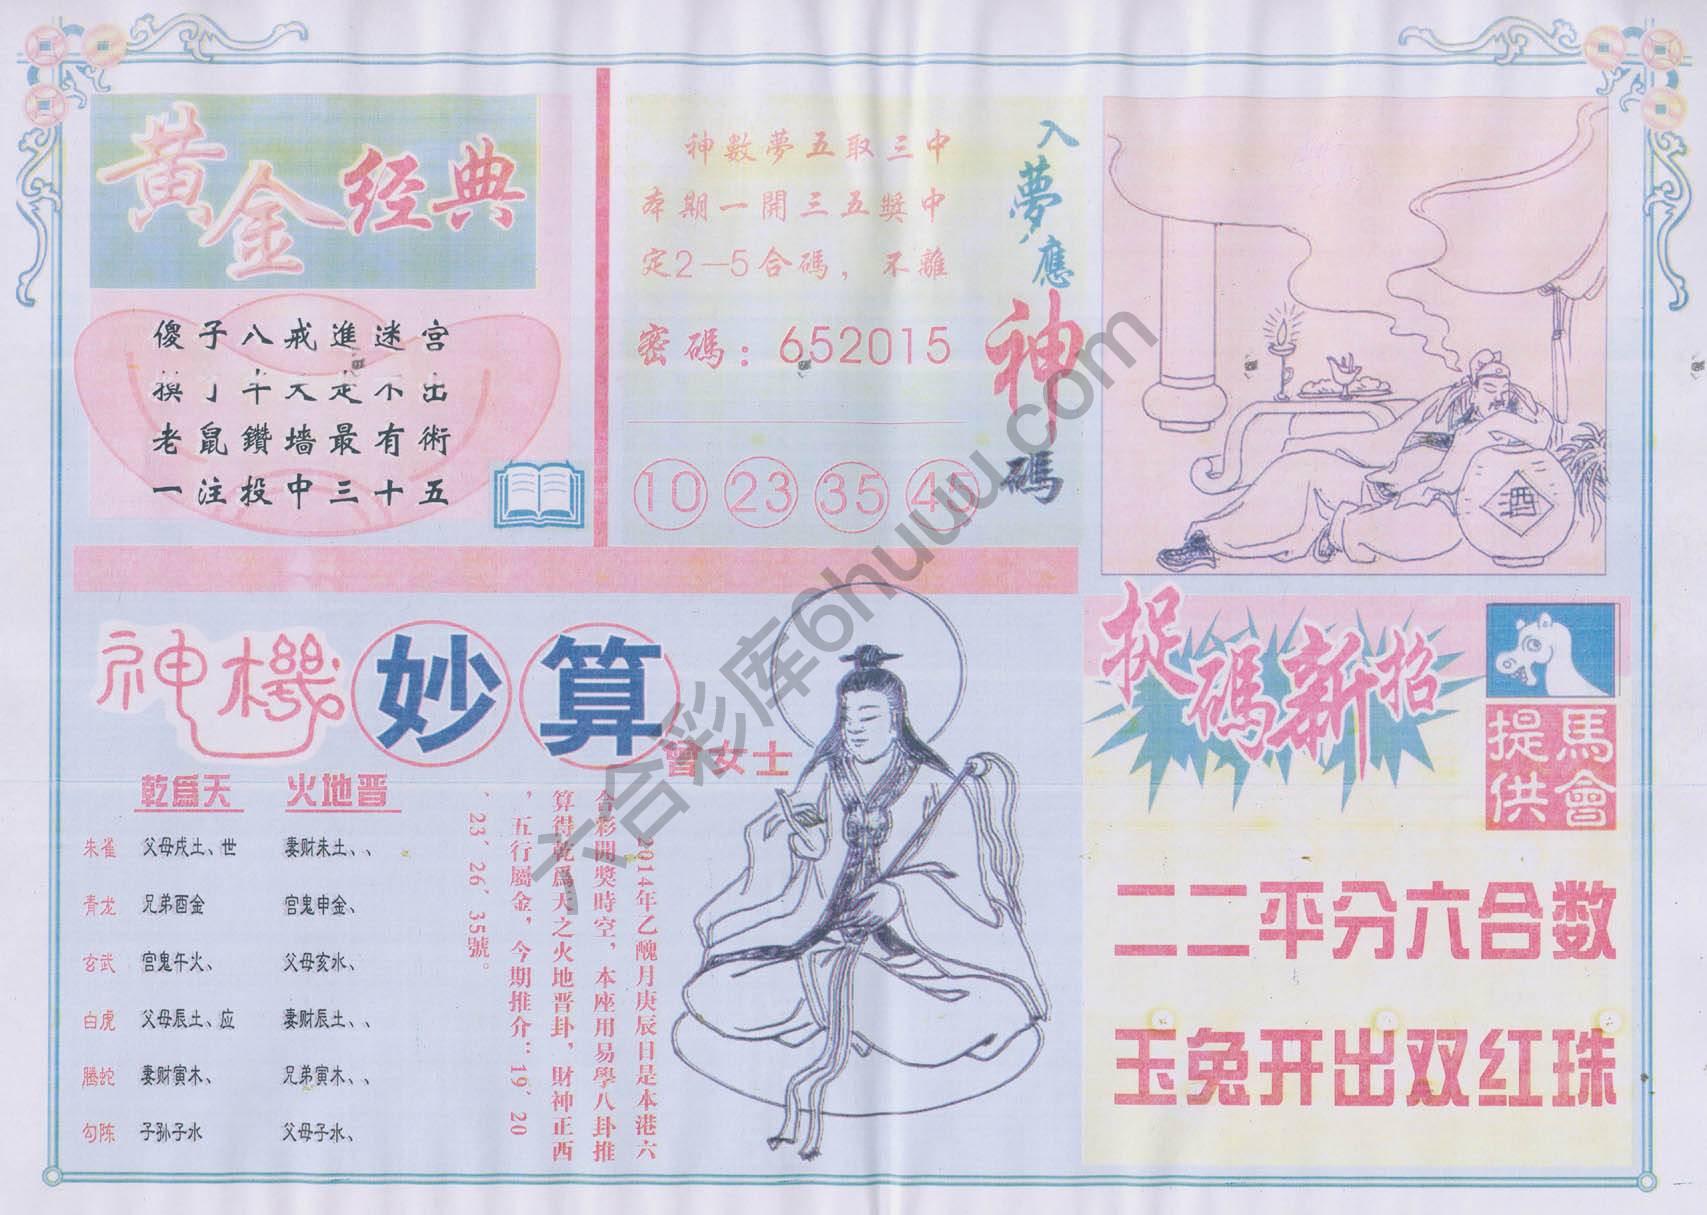 黄金经典
傻子八戒進迷宫
摸了半天走不出
老鼠鑽墻最有術
一注投中三十五
入夢應神碼
神數夢五取三中
本期一開三五獎中
定2—5合碼，不離
密碼：652015
10 23 35 45
酒
神機妙算
曾女士
乾爲天 火地晋
朱雀 父母戌土、世 妻财未土、、
青龙 兄弟酉金 官鬼申金、
玄武 官鬼午火、 父母亥水、
白虎 父母辰土、应 妻财辰土、、
腾蛇 妻财寅木、 兄弟寅木、、
勾陈 子孙子水 父母子水、
2014年乙醜月庚辰日是本港六
合彩開獎時空，本座用易學八卦推
算得乾爲天之火地晋卦，財神正西
，五行屬金，今期推介：19、20
、23、26、35號。
捉碼新招
馬會
提供
二二平分六合数
玉兔开出双红珠
六合彩库6huuu.com